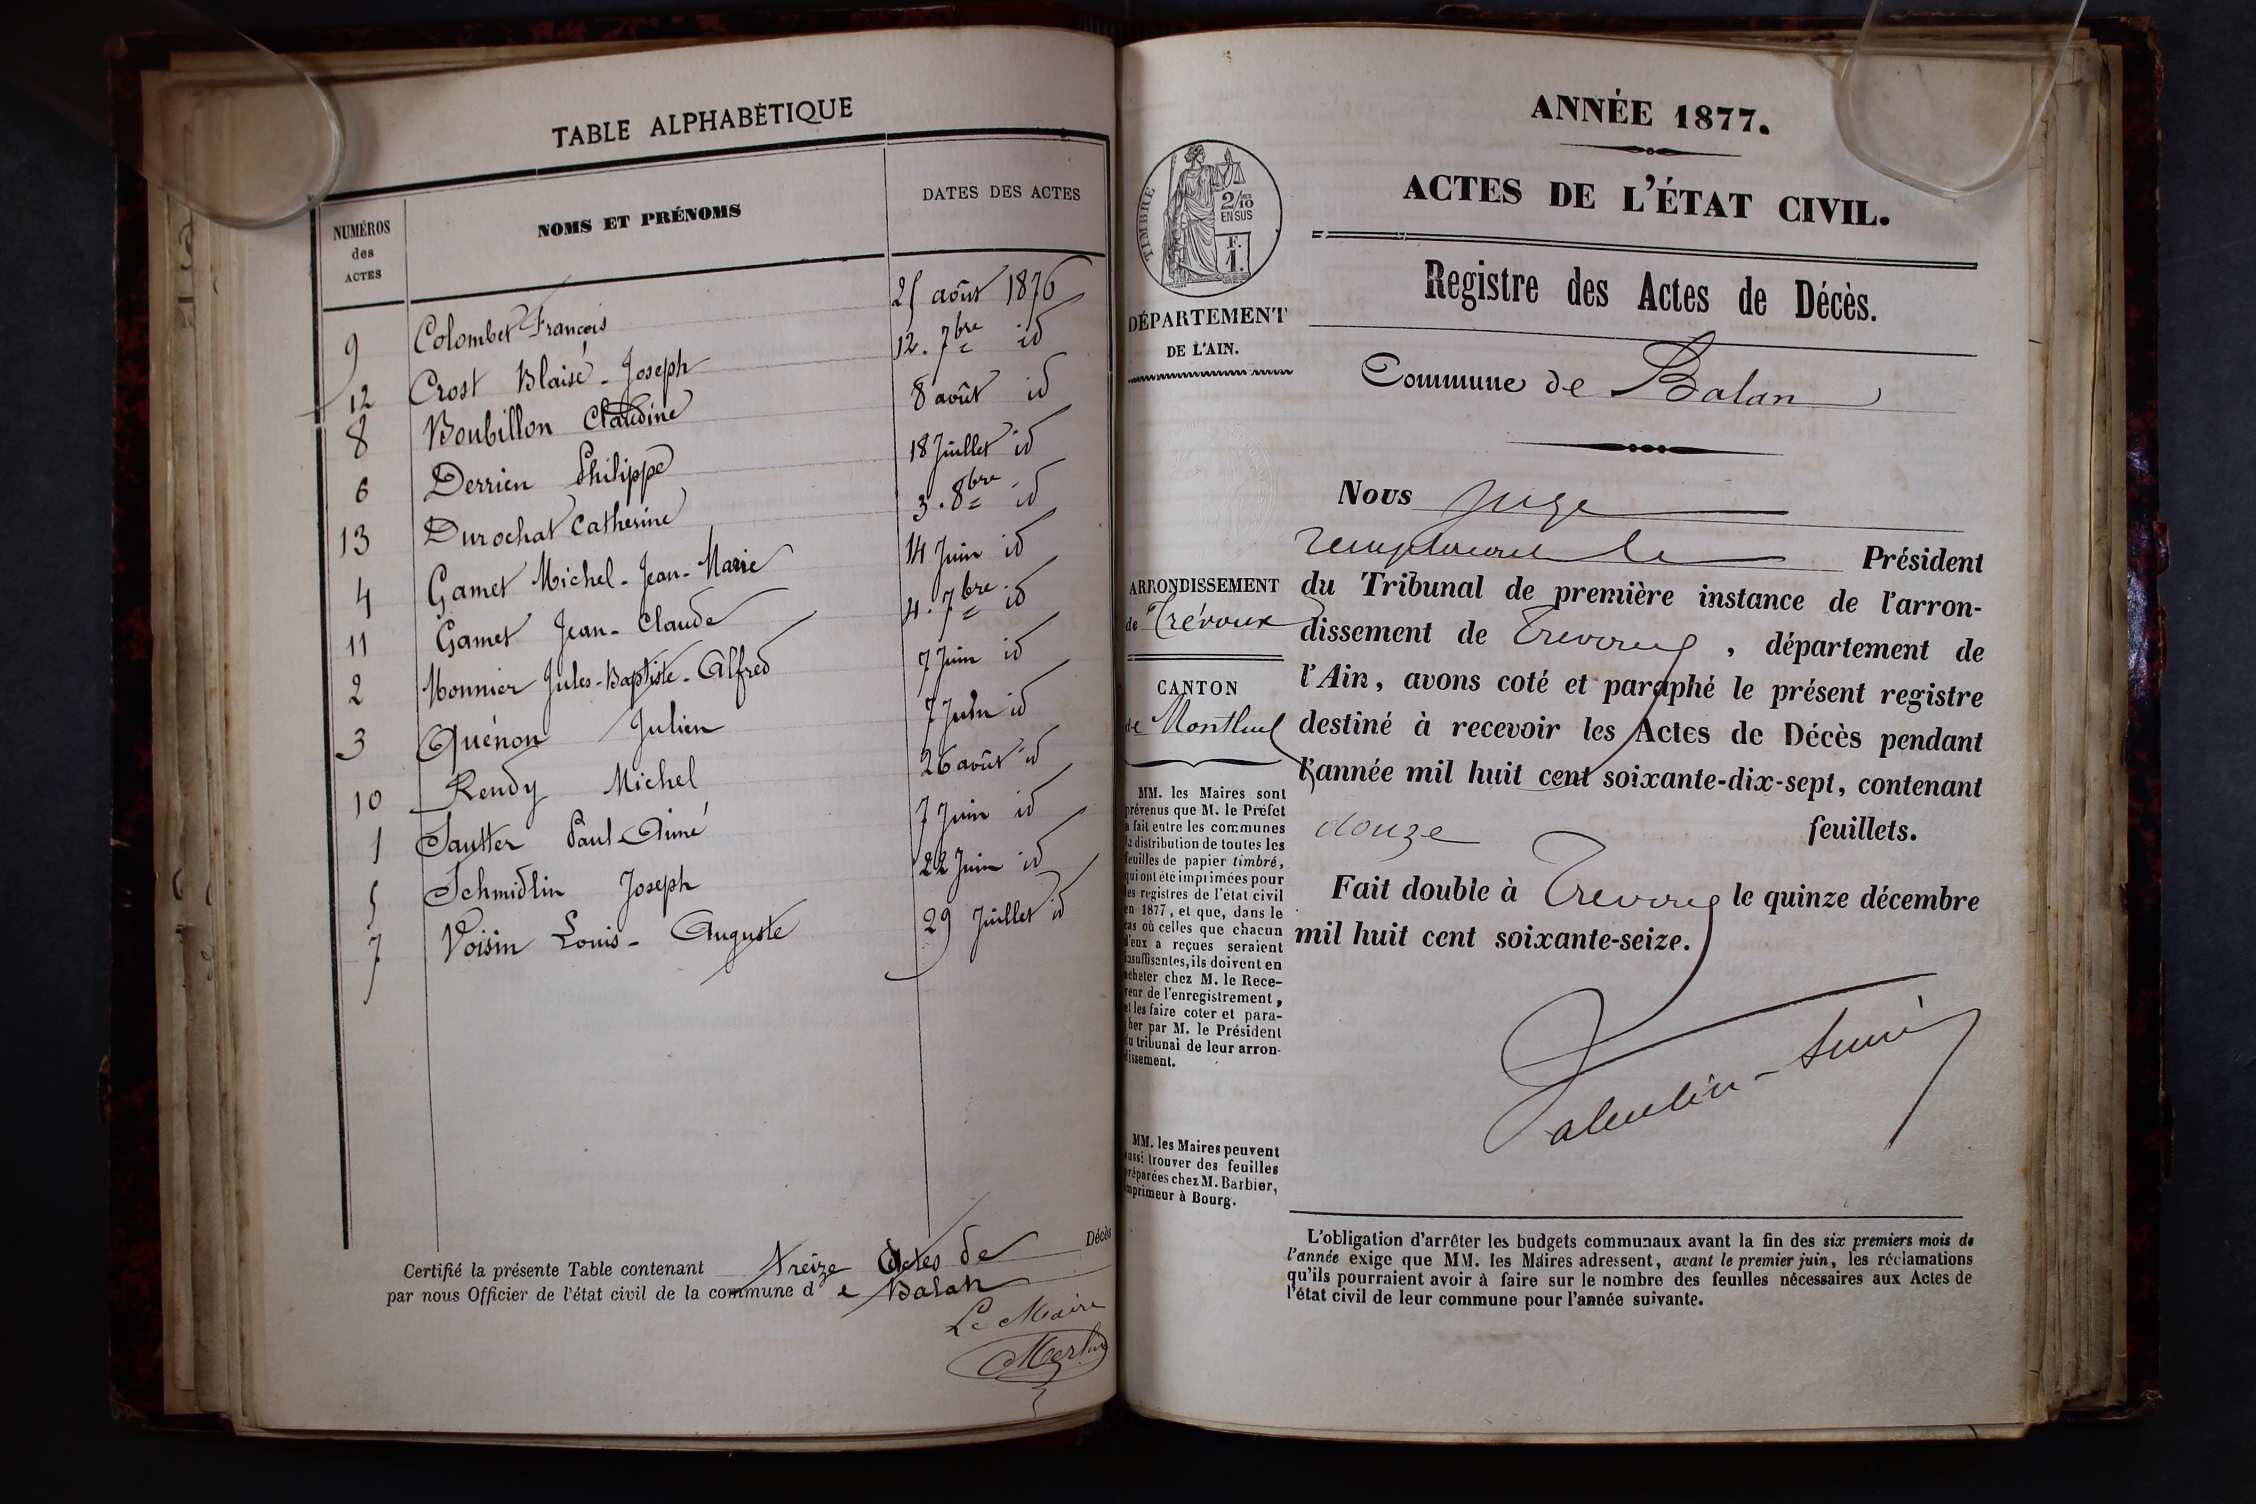 TABLE ALPHABÉTIQUE
NUMÉROS des ACTES
NOMS ET PRÉNOMS
DATES DES ACTES
9 Colombet François 25 août 1876
12 Crost Blaise - Joseph 12. 7bre id
8 Boubillon Claudine 8 août id
6 Derrien Philippe 18 Juillet id
13 Durochat Catherine 3. 8bre id
4 Gamet Michel - Jean - Marie 14 Juin id
11 Gamet Jean - Claude 4. 7bre id
2 Monnier Jules - Baptiste - Alfred 7 Juin id
3 Quénon Julien 7 Juin id
10 Rendy Michel 26 août id
1 Sautter Paul Aimé 7 Juin id
5 Schmidlin Joseph 22 Juin id
7 Voisin Louis - Auguste 29 Juillet id
Certifié la présente Table contenant treize Actes de Décès
par nous Officier de l'état civil de la commune de Balan
Le Maire
Merlin
ANNÉE 1877.
ACTES DE L'ÉTAT CIVIL.
TIMBRE
2/10 EN SUS
F. 1.
DÉPARTEMENT
DE L'AIN.
ARRONDISSEMENT
de Trévoux
CANTON
de Montluel
MM. les Maires sont
prévenus que M. le Préfet
a fait entre les communes
la distribution de toutes les
feuilles de papier timbré,
qui ont été imprimées pour
les registres de l'état civil
en 1877, et que, dans le
cas où celles que chacun
d'eux a reçues seraient
insuffisantes, ils doivent en
acheter chez M. le Rece-
veur de l'enregistrement,
et les faire coter et para-
pher par M. le Président
du tribunal de leur arron-
dissement.
MM. les Maires peuvent
aussi trouver des feuilles
préparées chez M. Barbier,
imprimeur à Bourg.
Registre des Actes de Décès.
Commune de Balan
Nous juge
remplaçant le Président
du Tribunal de première instance de l'arron-
dissement de Trevoux, département de
l'Ain, avons coté et paraphé le présent registre
destiné à recevoir les Actes de Décès pendant
l'année mil huit cent soixante-dix-sept, contenant
douze feuillets.
Fait double à Trevoux le quinze décembre
mil huit cent soixante-seize.
Valentin-Smith
L'obligation d'arrêter les budgets communaux avant la fin des six premiers mois de
l'année exige que MM. les Maires adressent, avant le premier juin, les réclamations
qu'ils pourraient avoir à faire sur le nombre des feuilles nécessaires aux Actes de
l'état civil de leur commune pour l'année suivante.